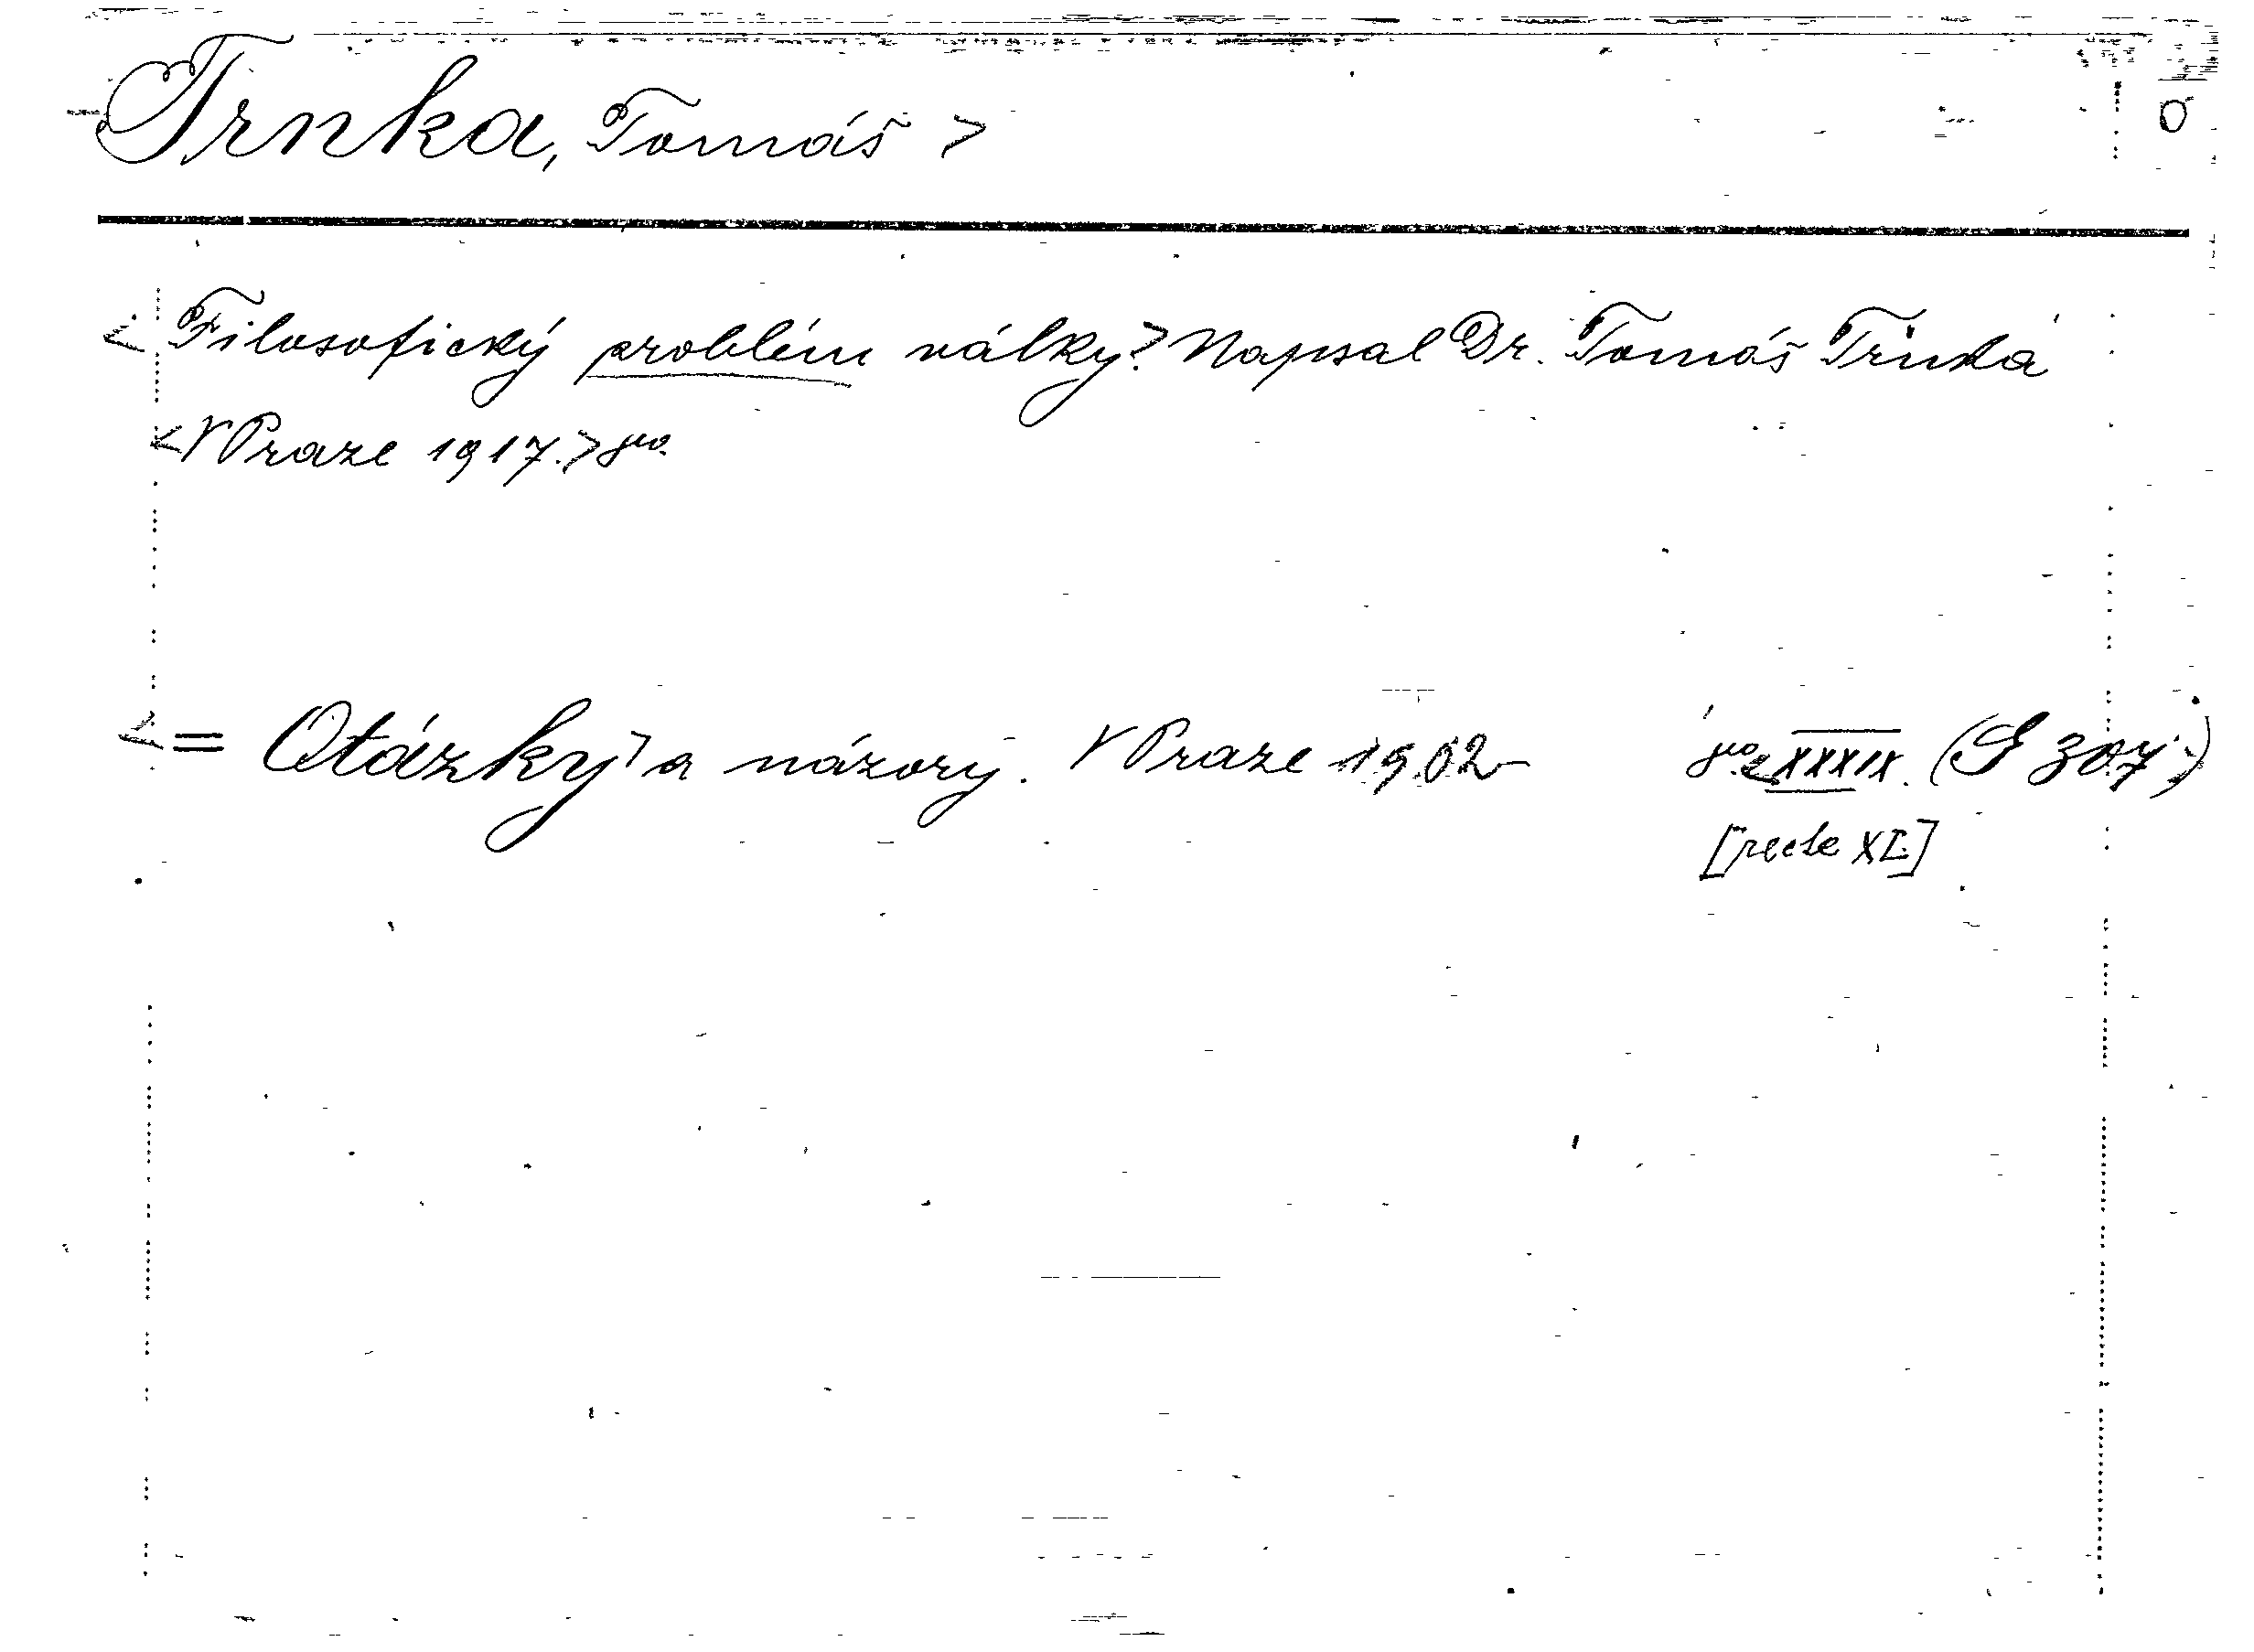 Trnka, Tomáš > O
< Filosofický problém války? Napsal Dr. Tomáš Trnka
<V Praze 1917.> 8vo.
= Otázky> a názory. V Praze 1902- 8vo < XXXIX. (S 307.)
[recte XL]